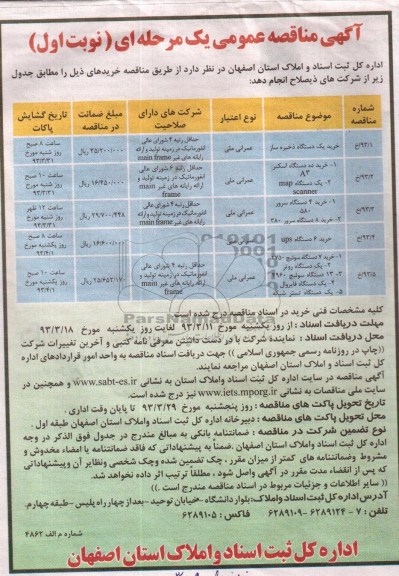 آگهی مناقصه عمومی یک مرحله ای ( نوبت اول )
اداره کل ثبت اسناد و املاک استان اصفهان در نظر دارد از طریق مناقصه خریدهای ذیل را مطابق جدول
زیر از شرکت های ذیصلاح انجام دهد:
شماره مناقصه
موضوع مناقصه
نوع اعتبار
شرکت های دارای صلاحیت
مبلغ ضمانت در مناقصه
تاریخ گشایش پاکات
۹۳/۱/خ
خرید یک دستگاه ذخیره ساز
عمرانی ملی
حداقل رتبه ۴ شورای عالی
انفورماتیک در زمینه تولید و ارائه
رایانه های غیر main frame
۳۵/۲۰۰/۰۰۰ ریال
ساعت ۸ صبح
روز شنبه مورخ
۹۳/۳/۳۱
۹۳/۲/خ
۱- خرید ده دستگاه اسکنر
A۳
۲- یک دستگاه map
scanner
عمرانی ملی
انفورماتیک در زمینه تولید و
ارائه رایانه های غیر main
frame
۱۶/۴۵۰/۰۰۰ ریال
ساعت ۱۰ صبح
روز شنبه مورخ
۹۳/۳/۳۱
۹۳/۳/خ
۱- خرید ۴ دستگاه سرور
۵۸۰
۲- خرید ۵ دستگاه سرور ۳۸۰
عمرانی ملی
حداقل رتبه ۴ شورای عالی
انفورماتیک در زمینه تولید و ارائه
رایانه های غیر main frame
۲۹/۷۰۰/۴۴۸ ریال
ساعت ۱۲ ظهر
روز شنبه مورخ
۹۳/۳/۳۱
۹۳/۴/خ
خرید ۶ دستگاه ups
عمرانی ملی
۱۶/۶۰۰/۰۰۰ ریال
ساعت ۸ صبح
روز یکشنبه مورخ
۹۳/۴/۱
۹۳/۵/خ
۱- خرید ۷ دستگاه سوئیچ ۳۷۵۰
۲- یک دستگاه روتر
۳- ۱۳ دستگاه سوئیچ ۲۹۶۰
۴- یک دستگاه فایروال
۵- یک دستگاه تستر شبکه
عمرانی ملی
حداقل رتبه ۴ شورای عالی
انفورماتیک در زمینه تولید و
ارائه رایانه های غیر main
frame
۲۵/۶۵۲/۱۷۰ ریال
ساعت ۱۰ صبح
روز یکشنبه مورخ
۹۳/۴/۱
ParsNamadData
کلیه مشخصات فنی خرید در اسناد مناقصه درج شده است.
مهلت دریافت اسناد : از روز یکشنبه مورخ ۹۳/۳/۱۱ لغایت روز یکشنبه مورخ ۹۳/۳/۱۸
محل دریافت اسناد : نماینده شرکت با در دست داشتن معرفی نامه کتبی و آخرین تغییرات شرکت
((چاپ در روزنامه رسمی جمهوری اسلامی )) جهت دریافت اسناد مناقصه به واحد امور قراردادهای اداره
کل ثبت اسناد و املاک استان اصفهان مراجعه نمایند.
آگهی مناقصه در سایت اداره کل ثبت اسناد و املاک استان به نشانی www.sabt-es.ir و همچنین در
سایت ملی مناقصات به نشانی www.iets.mporg.ir نیز درج شده است.
تاریخ تحویل پاکت های مناقصه : روز پنجشنبه مورخ ۹۳/۳/۲۹ تا پایان وقت اداری .
محل تحویل پاکت های مناقصه : دبیرخانه اداره کل ثبت اسناد و املاک استان اصفهان طبقه اول .
نوع تضمین شرکت در مناقصه : ضمانتنامه بانکی به مبالغ مندرج در جدول فوق الذکر در وجه
اداره کل ثبت اسناد و املاک استان اصفهان .ضمناً به پیشنهاداتی که فاقد ضمانتنامه یا امضاء مخدوش و
مشروط وضمانتنامه های کمتر از میزان مقرر ، چک تضمین شده وچک شخصی ونظایر آن وپیشنهاداتی
که پس از انقضاء مدت مقرر در آگهی واصل شود ، مطلقاً ترتیب اثر داده نخواهد شد.
(( سایر اطلاعات و جزئیات مربوط در اسناد مناقصه مندرج است .))
آدرس اداره کل ثبت اسناد و املاک: بلوار دانشگاه -خیابان توحید -بعد از چهار راه پلیس -طبقه چهارم.
تلفن : ۷ - ۶۲۸۹۱۲۴ - ۶۲۸۹۱۰۹ فاکس : ۶۲۸۹۱۰۵
شماره م الف ۴۸۶۲
اداره کل ثبت اسناد و املاک استان اصفهان